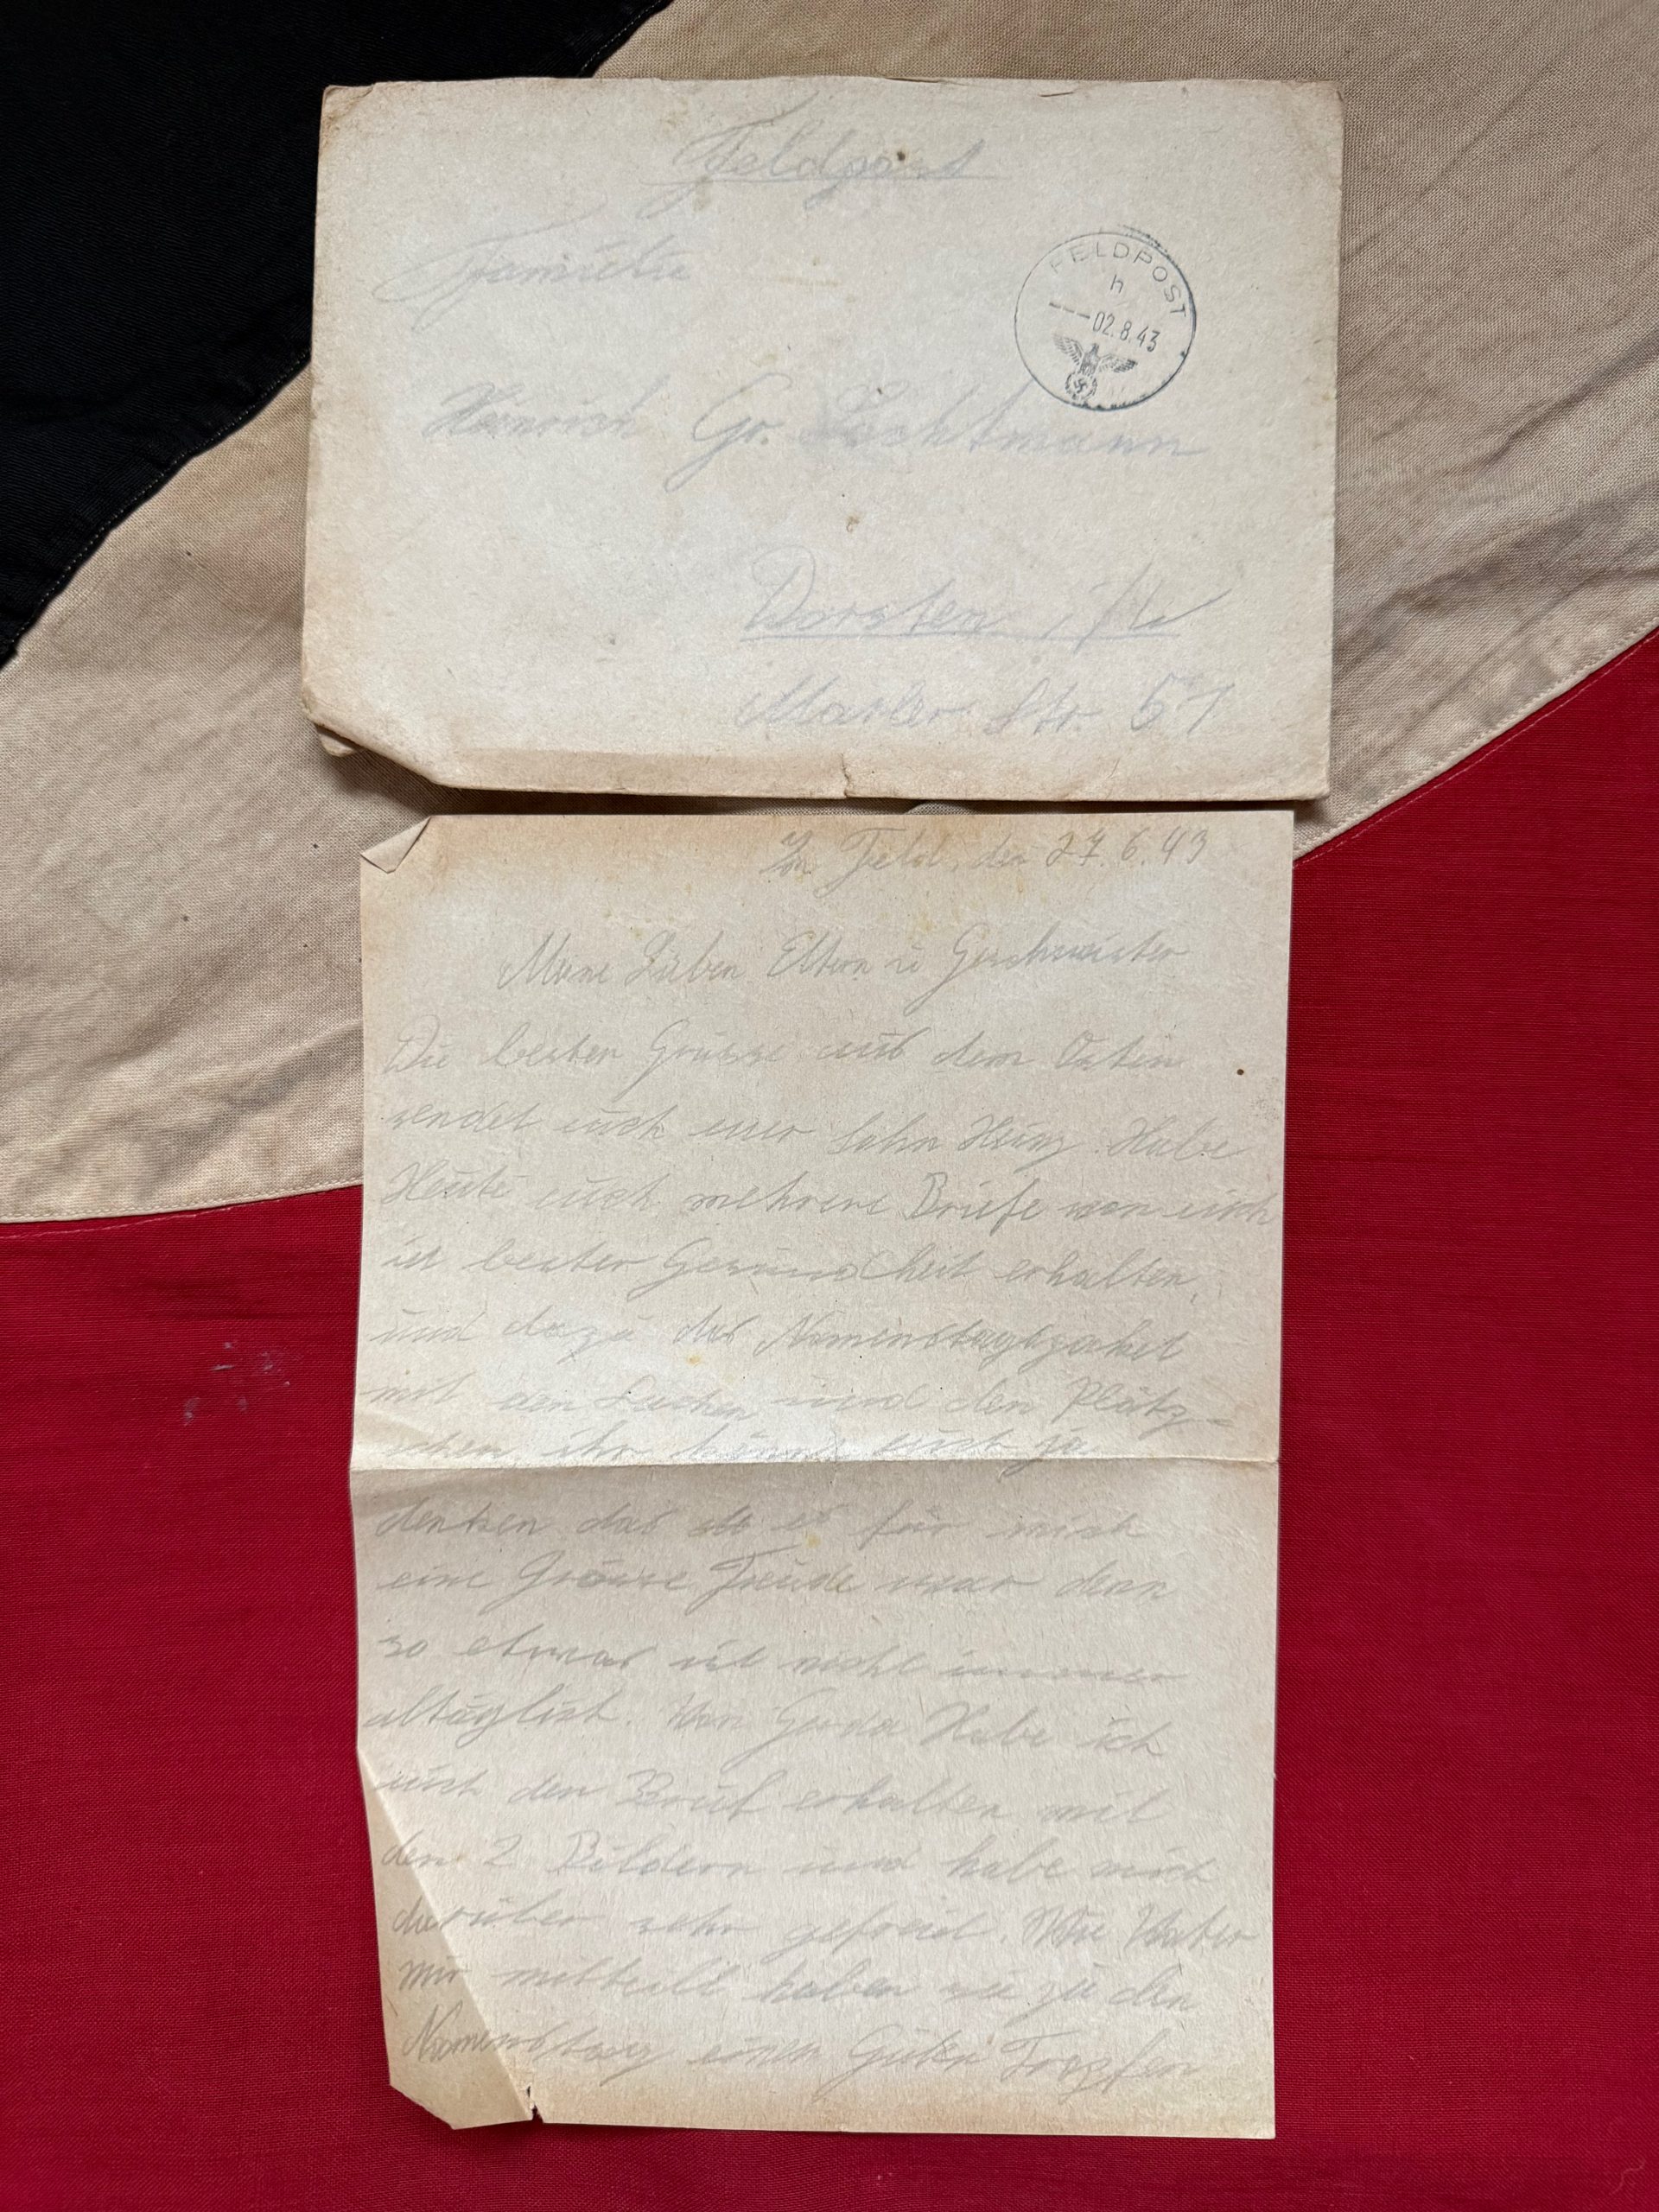 Feldpost
Familie
FELDPOST
h
---02.8.43
Heinrich Gr. Lichtmann
Dorsten i/W
Marler Str. 57
Im Feld, den 27.6.43
Meine Lieben Eltern u Geschwister
Die besten Grüsse aus dem Osten
sendet euch euer Sohn Heinz. Habe
Heute auch mehrere Briefe von euch
in bester Gesundheit erhalten,
und dazu das Namenstagspaket
mit den Sachen und den Plätz-
chen ihr könnt euch ja
denken das es für mich
eine Grosse Freude war denn
so etwas ist nicht immer
altäglich. Von Gerda Habe ich
auch den Brief erhalten mit
den 2 Bildern und habe mich
darüber sehr gefreut. Wie Vater
mir mitteilt haben sie zu den
Namenstag einen Guten Tropfen